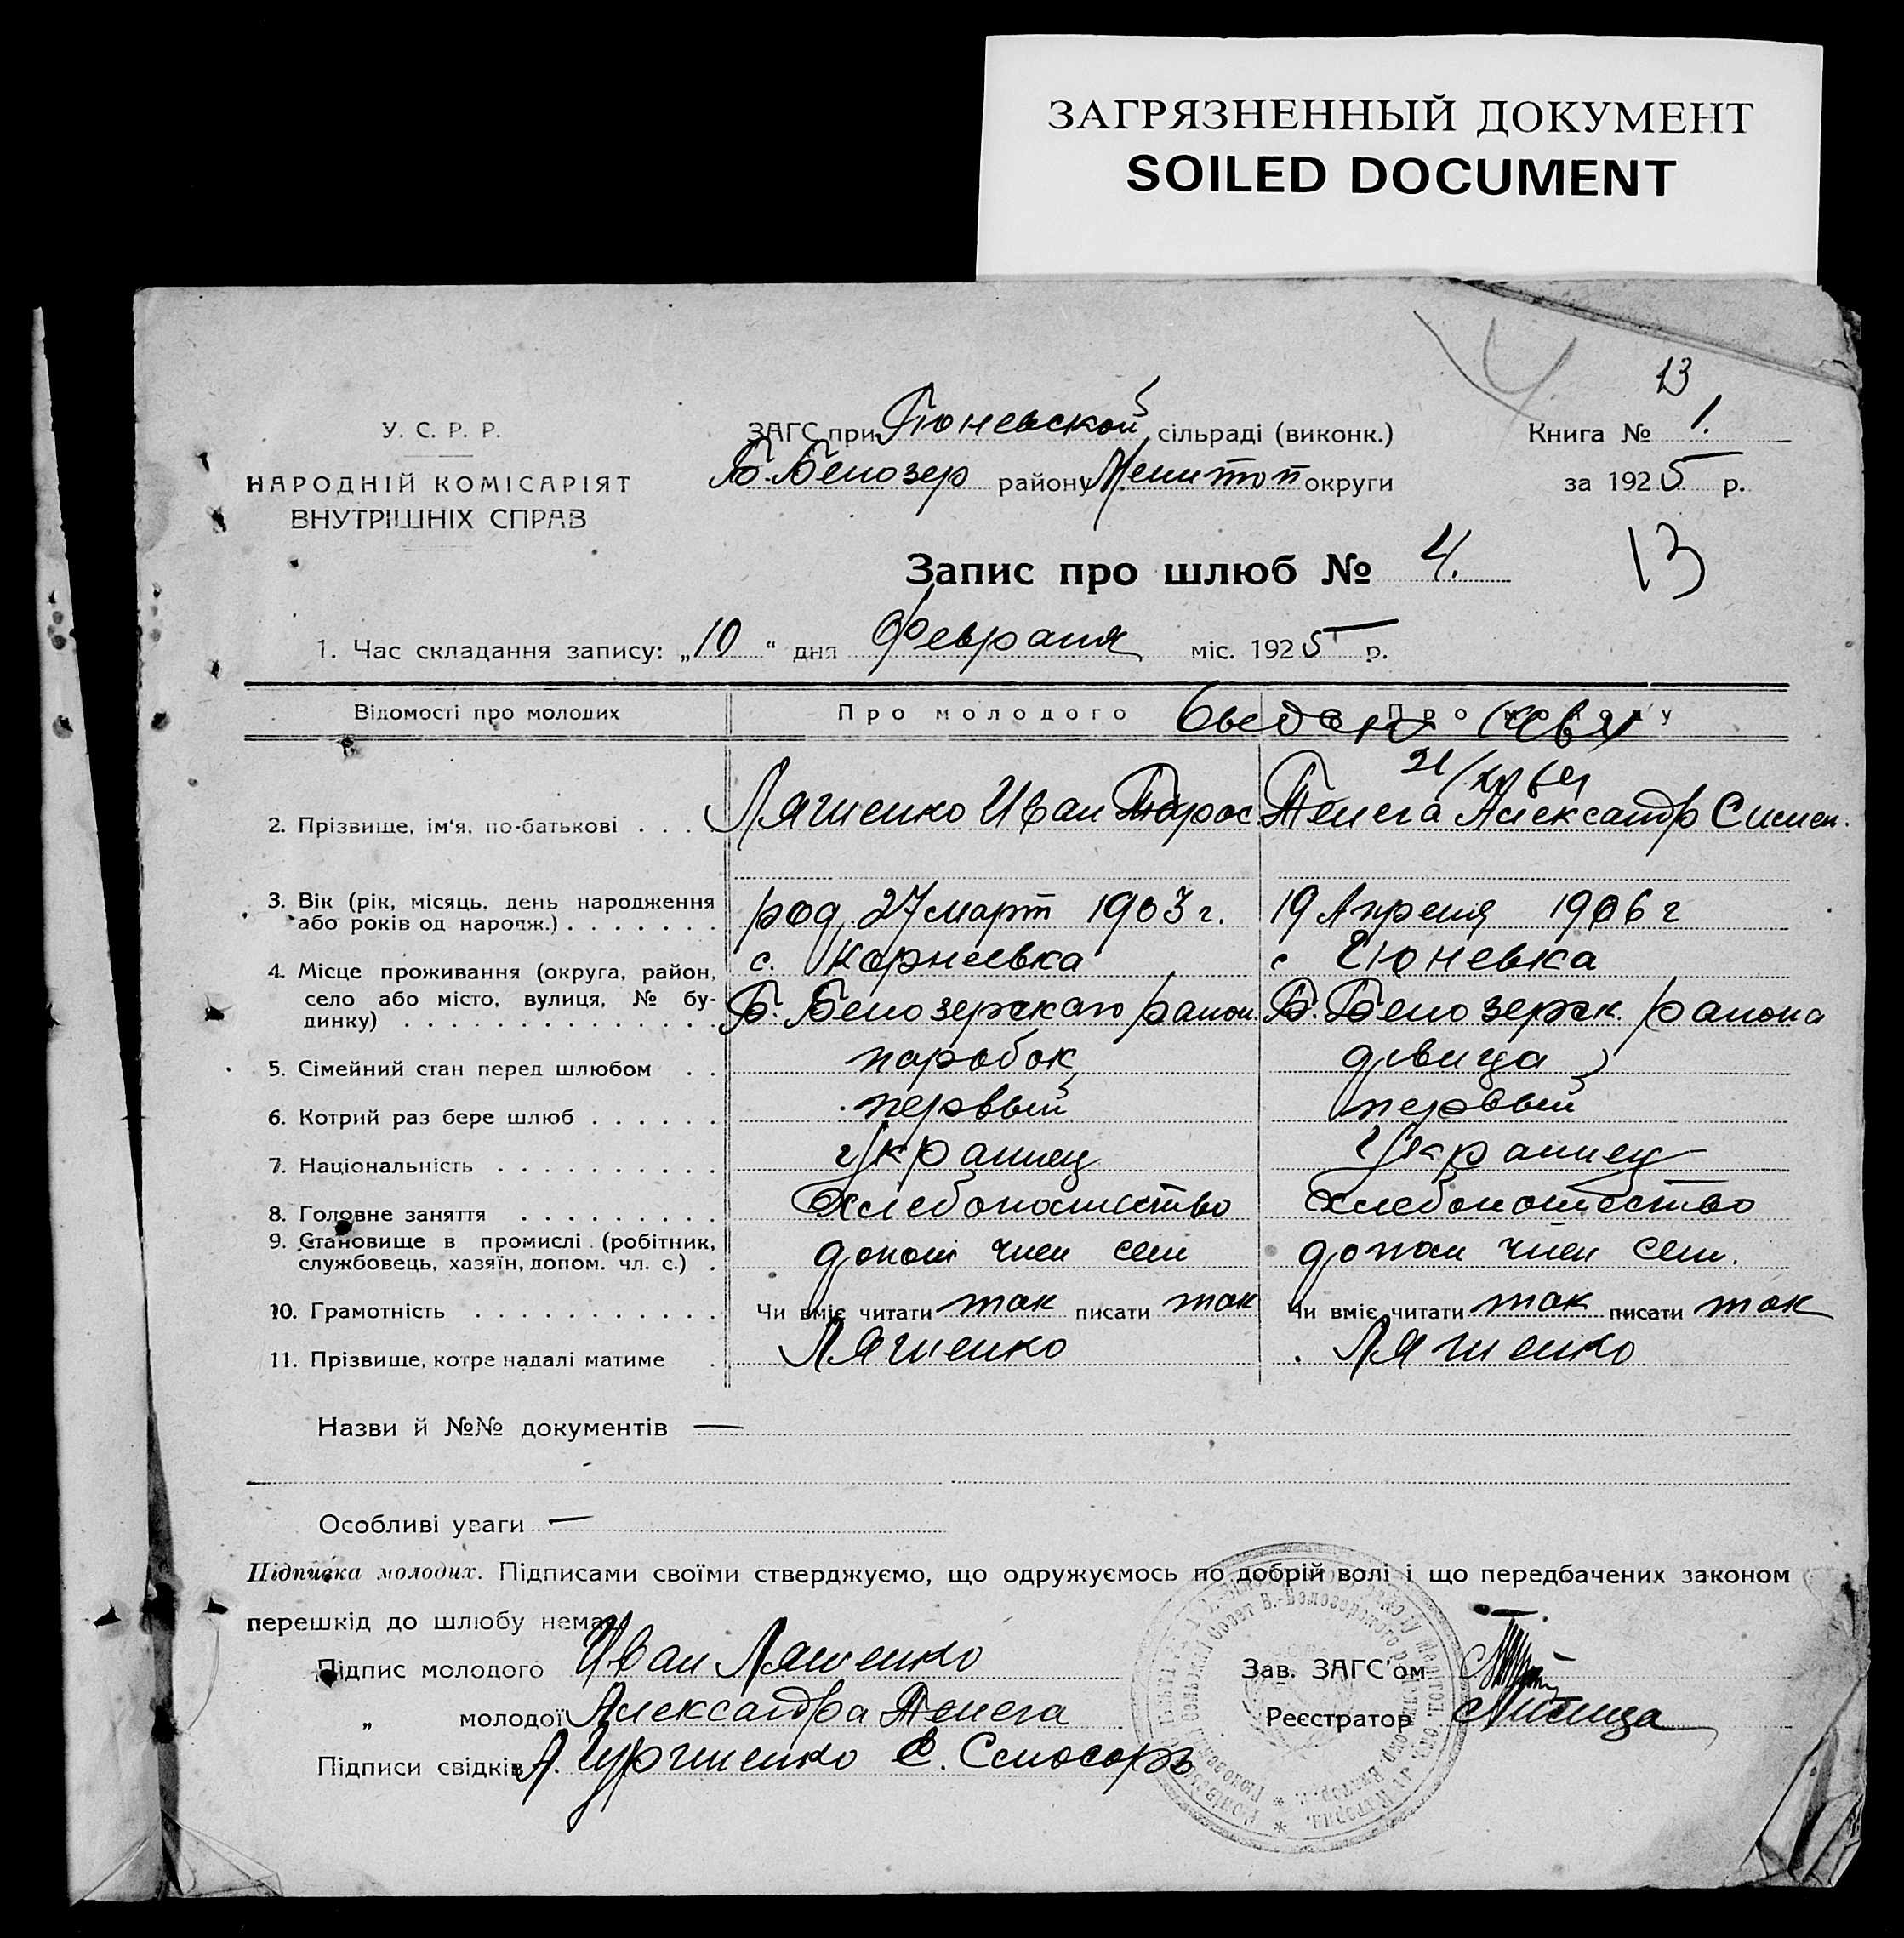 ЗАГРЯЗНЕННЫЙ ДОКУМЕНТ
SOILED DOCUMENT
13
У. С. Р. Р.
НАРОДНІЙ КОМІСАРІЯТ
ВНУТРІШНІХ СПРАВ
ЗАГС при Гюневской сільраді (виконк.)
Б. Белозер району Мелитоп округи
Книга № 1.
за 1925 р.
Запис про шлюб № 4.
13
1. Час складання запису: „10“ дня февраля міс. 1925 р.
Відомості про молодих Про молодого Про молоду
2. Прізвище, ім'я, по-батькові . . . Ляшенко Иван Тарас. Телега Александр Симен.
3. Вік (рік, місяць, день народження
або років од народж.) . . . . . . . род. 27 март 1903 г. 19 Апреля 1906 г
с. Корнеевка с Гюневка
4. Місце проживання (округа, район,
село або місто, вулиця, № бу-
динку) . . . . . . . . . . . . . . Б. Белозерскаго район. Б. Белозерск. района
5. Сімейний стан перед шлюбом . . паробок девица
6. Котрий раз бере шлюб . . . . . . первый первый
7. Національність . . . . . . . . . . Украинец Украинец
8. Головне заняття . . . . . . . . . Хлебопашество Хлебопашество
9. Становище в промислі (робітник,
службовець, хазяїн, допом. чл. с.) . допом член сем допом член сем.
10. Грамотність . . . . . . . . . . . Чи вміє читати так писати так Чи вміє читати так писати так
11. Прізвище, котре надалі матиме . Ляшенко Ляшенко
Назви й №№ документів —
Особливі уваги —
Підписка молодих. Підписами своїми стверджуємо, що одружуємось по добрій волі і що передбачених законом
перешкід до шлюбу немає.
Підпис молодого Иван Ляшенко
Зав. ЗАГС'ом
„ молодої Александра Телега
Реєстратор
Підписи свідків А. Гурженко С. Слюсарь